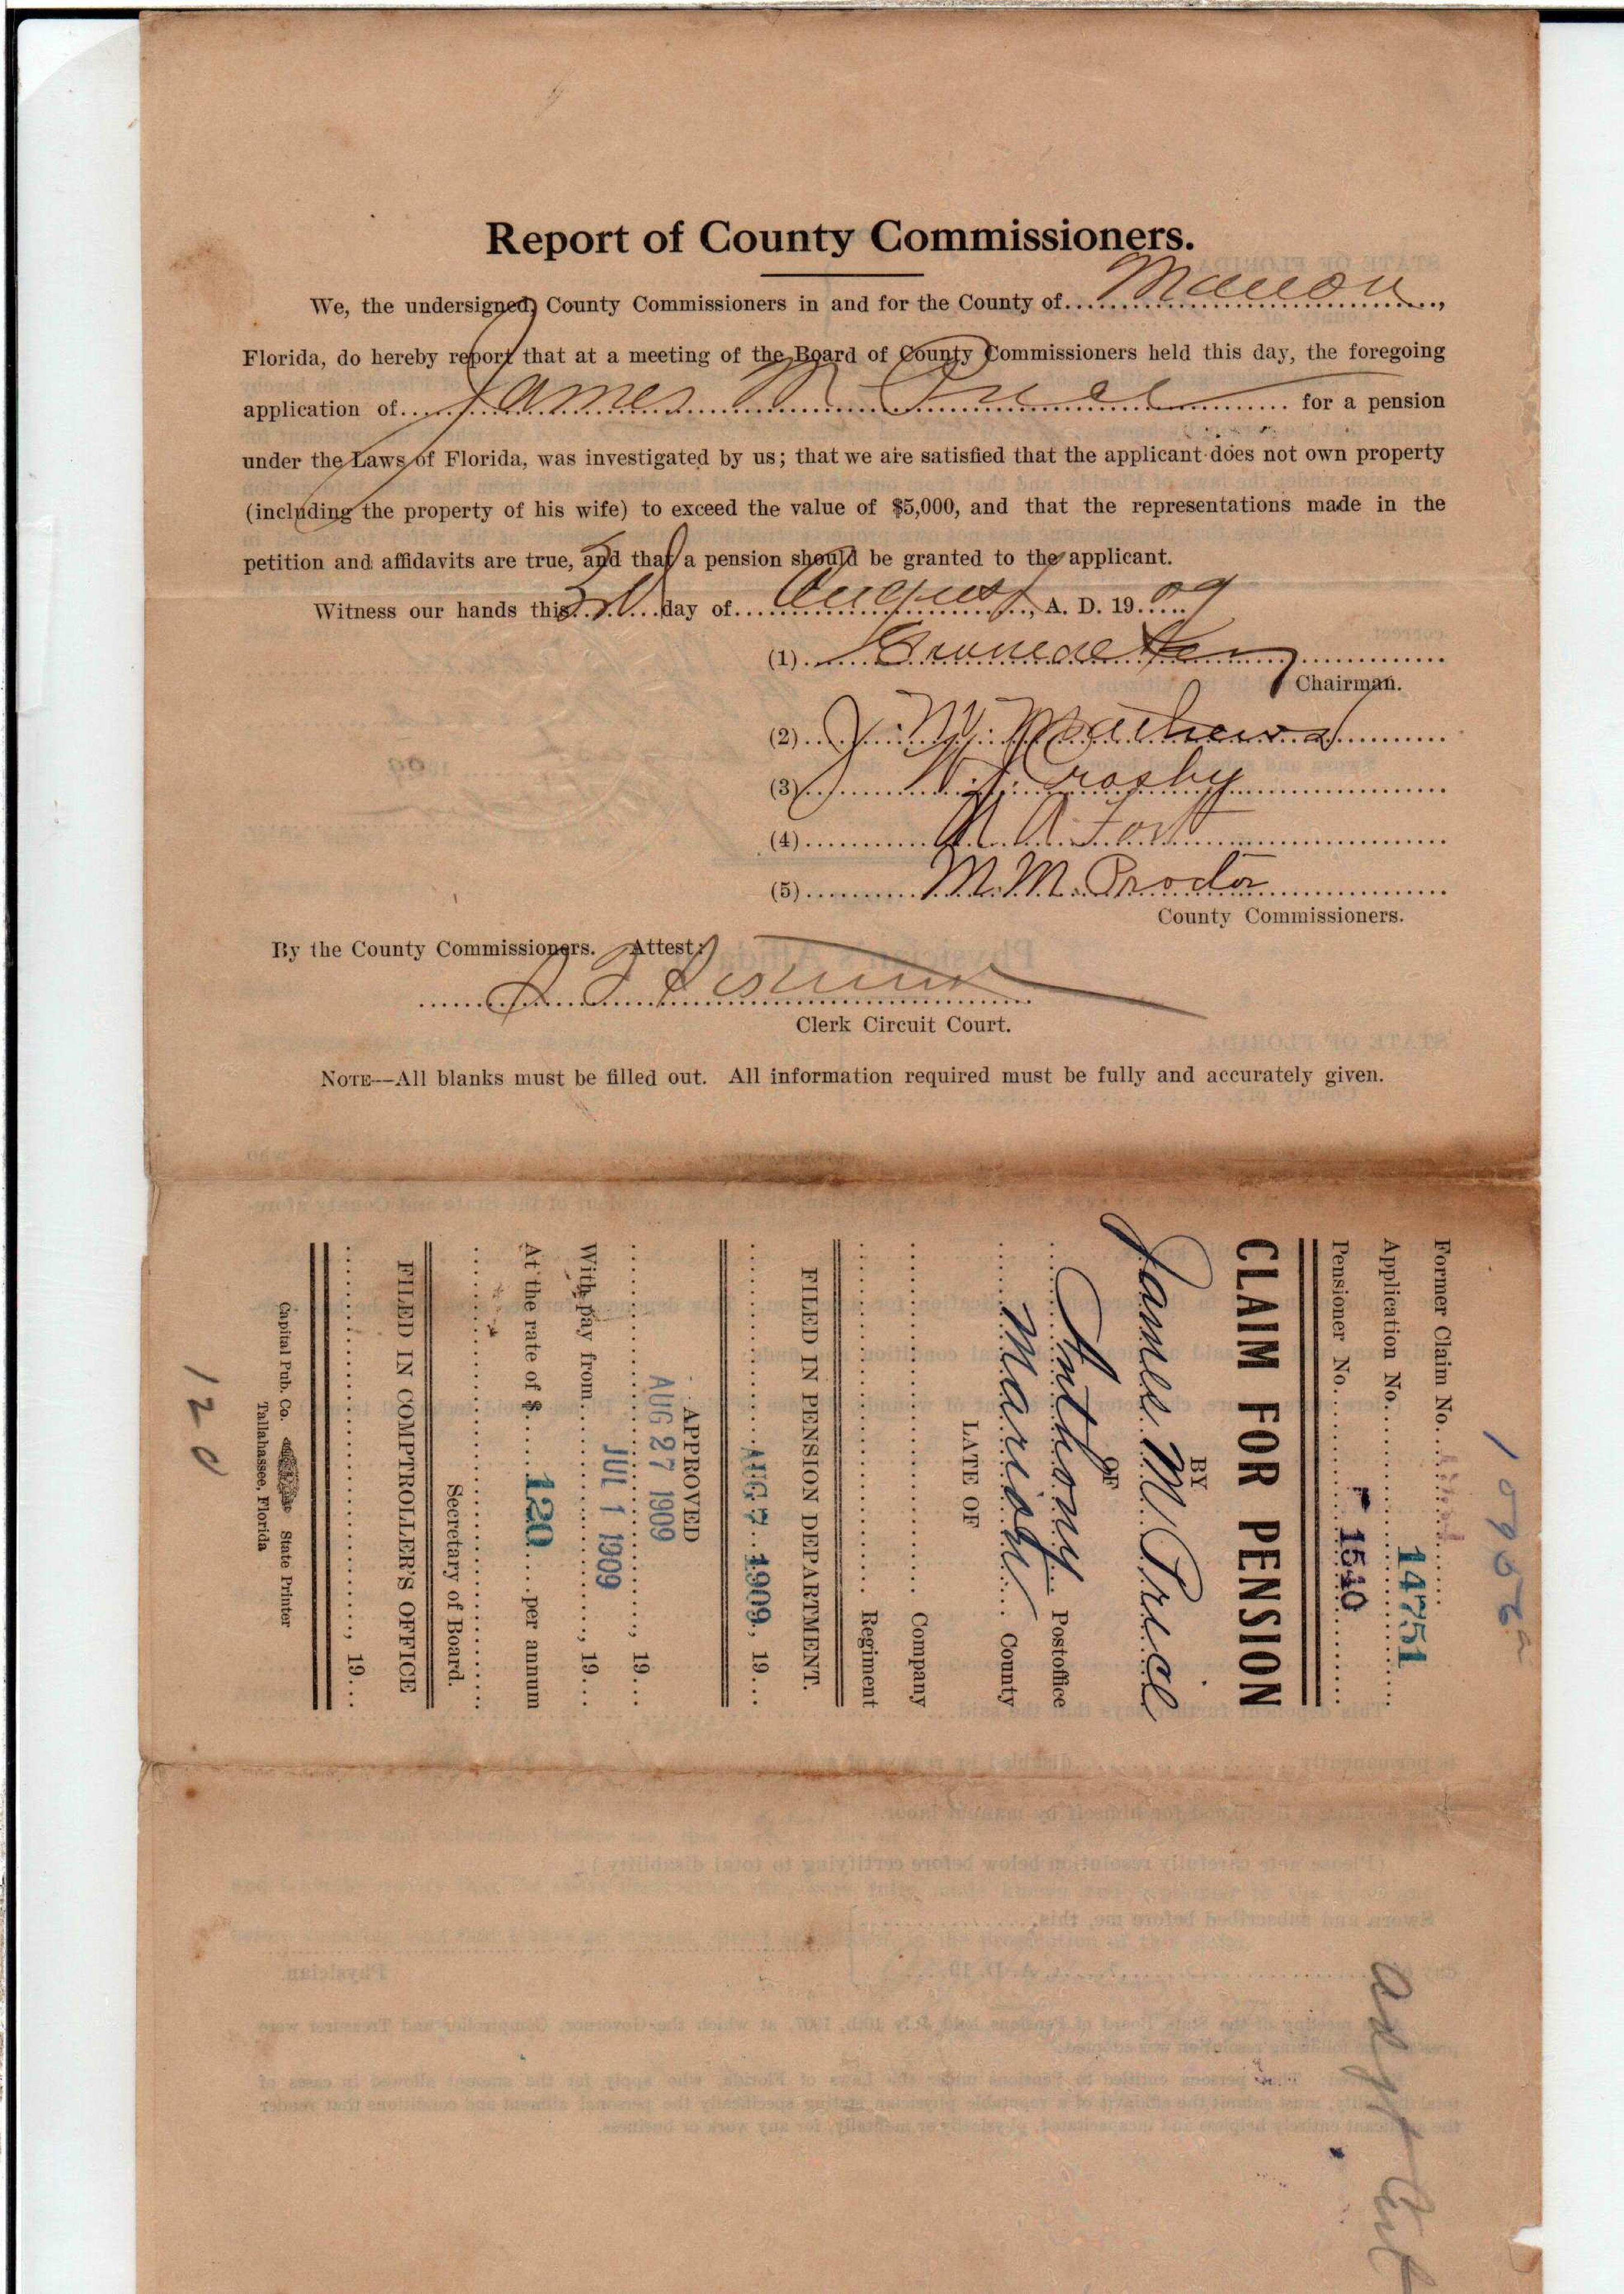 Report of County Commissioners.
We, the undersigned, County Commissioners in and for the County of Marion,
Florida, do hereby report that at a meeting of the Board of County Commissioners held this day, the foregoing
application of James M Price for a pension
under the Laws of Florida, was investigated by us; that we are satisfied that the applicant does not own property
(including the property of his wife) to exceed the value of $5,000, and that the representations made in the
petition and affidavits are true, and that a pension should be granted to the applicant.
Witness our hands this 3rd day of August, A. D. 1909
(1)
Chairman.
(2) J. M. Mathews
(3) W. J. Crosby
(4) N. A. Fort
(5) M. M. Proctor
County Commissioners.
By the County Commissioners. Attest:
Clerk Circuit Court.
NOTE—All blanks must be filled out. All information required must be fully and accurately given.
Former Claim No.
Application No. 14751
Pensioner No. 1540
CLAIM FOR PENSION
BY
James M Price
OF
Anthony Postoffice
Marion County
LATE OF
Company
Regiment
FILED IN PENSION DEPARTMENT.
AUG 7 1909, 19
APPROVED
AUG 27 1909, 19
With pay from JUL 1 1909, 19
At the rate of $ 120 per annum
Secretary of Board.
FILED IN COMPTROLLER'S OFFICE
, 19
Capital Pub. Co. State Printer
Tallahassee, Florida
120